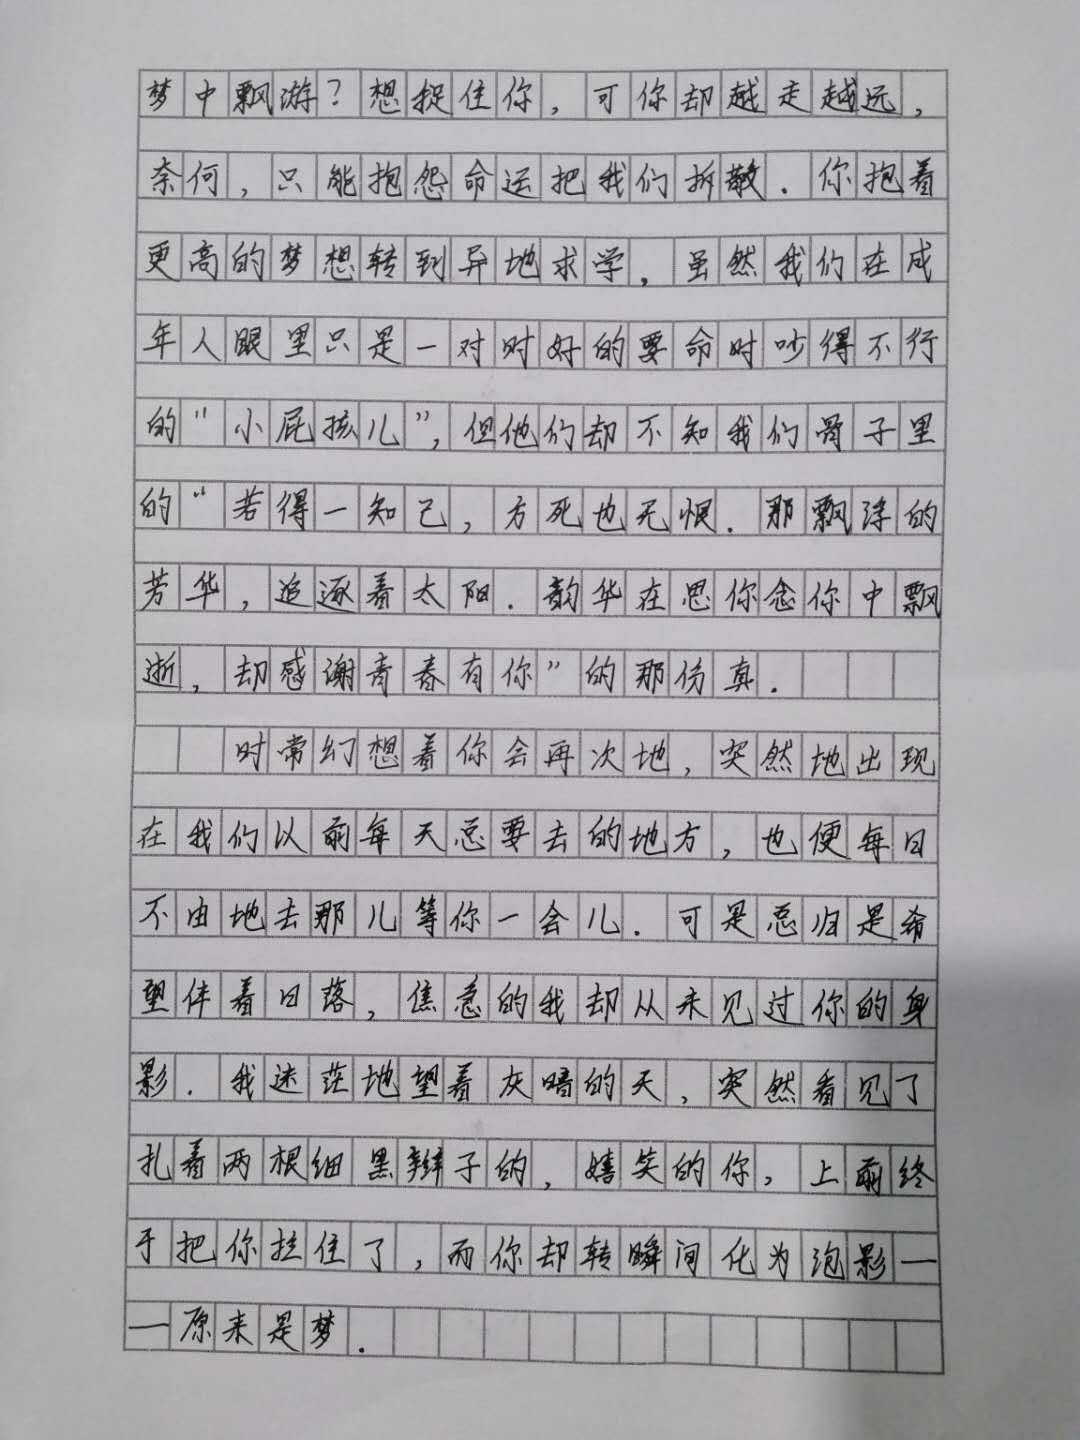 梦中飘游?想捉住你,可你却越走越远,
奈何,只能抱怨命运把我们拆散.你抱着
更高的梦想转到异地求学,虽然我们在成
年人眼里只是一对时好的要命时吵得不行
的“小屁孩儿”,但他们却不知我们骨子里
的“若得一知己,方死也无恨.那飘浮的
芳华,追逐着太阳.韵华在思你念你中飘
逝,却感谢青春有你”的那份真.
时常幻想着你会再次地,突然地出现
在我们以前每天总要去的地方,也便每日
不由地去那儿等你一会儿.可是总归是希
望伴着日落,焦急的我却从未见过你的身
影.我迷茫地望着灰暗的天,突然看见了
扎着两根细黑辫子的,嬉笑的你,上前终
于把你拦住了,而你却转瞬间化为泡影—
—原来是梦.